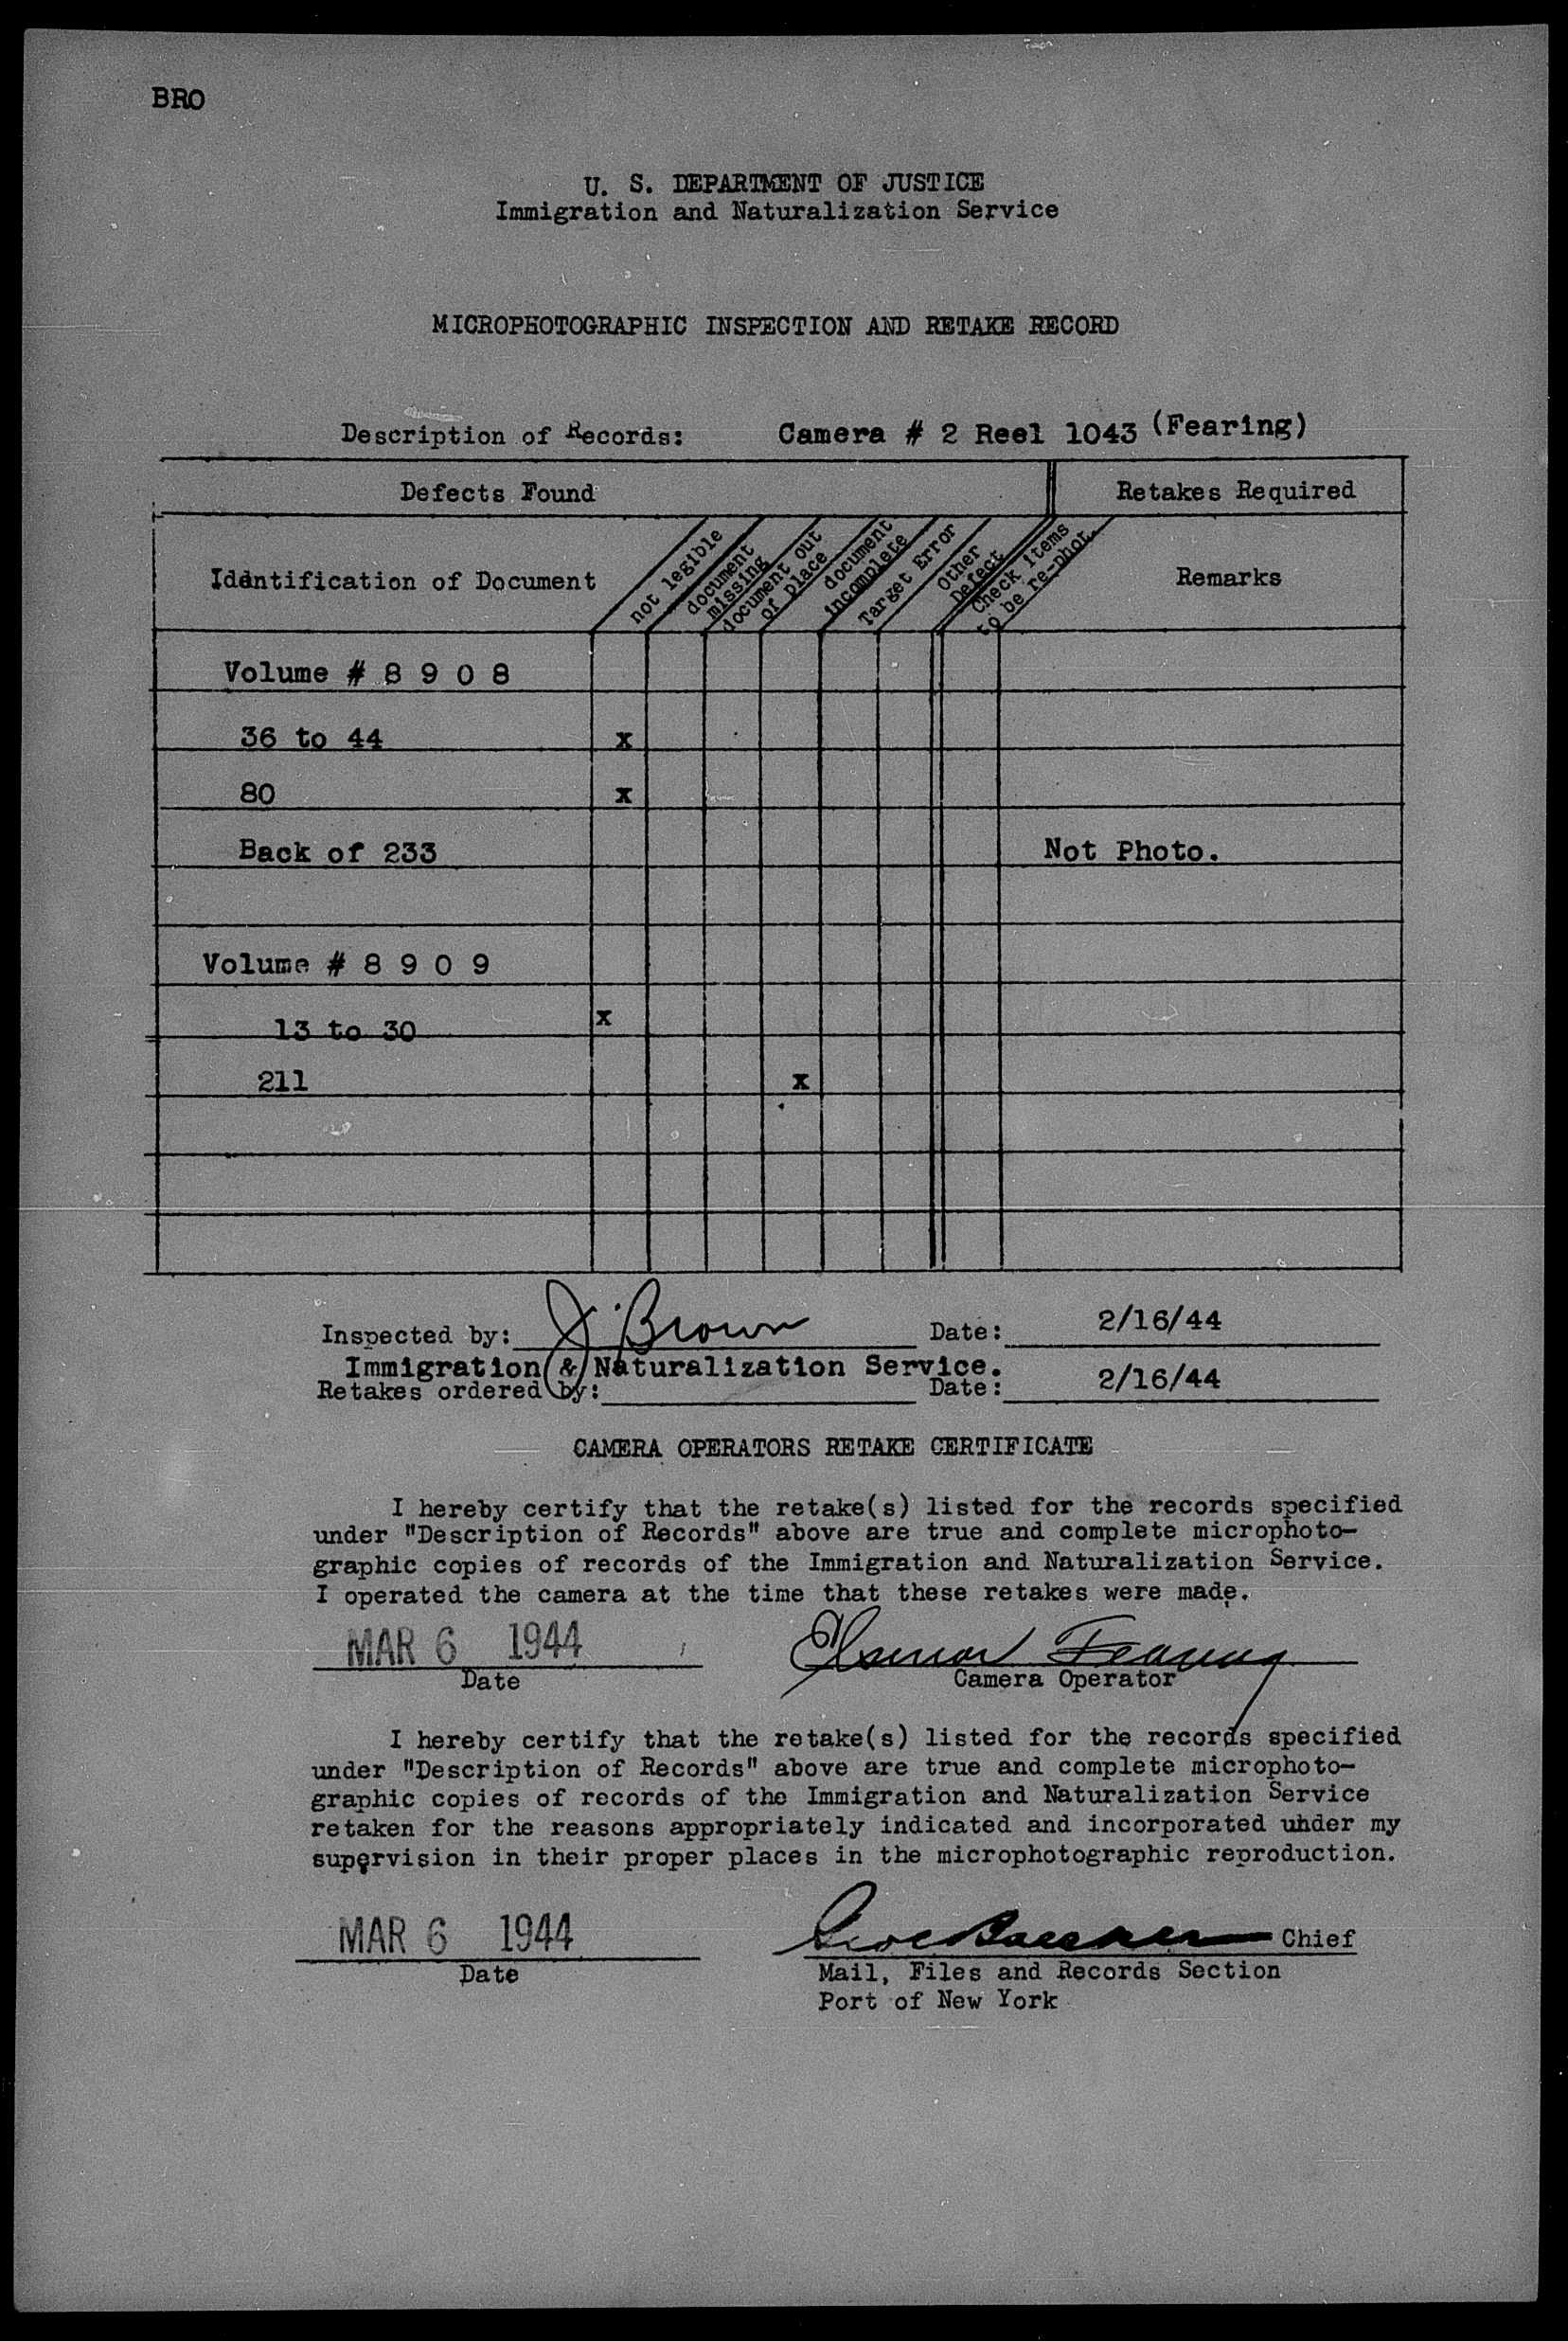 BRO
U. S. DEPARTMENT OF JUSTICE
Immigration and Naturalization Service
MICROPHOTOGRAPHIC INSPECTION AND RETAKE RECORD
Description of Records: Camera # 2 Reel 1043 (Fearing)
Defects Found Retakes Required
Idantification of Document
not legible
document missing
document out of place
document incomplete
Target Error
Other Defect
Check items to be re-phot.
Remarks
Volume # 8 9 0 8
36 to 44 x
80 x
Back of 233 Not Photo.
Volume # 8 9 0 9
13 to 30 x
211 x
Inspected by: J. Brown Date: 2/16/44
Immigration & Naturalization Service.
Retakes ordered by: Date: 2/16/44
CAMERA OPERATORS RETAKE CERTIFICATE
I hereby certify that the retake(s) listed for the records specified
under "Description of Records" above are true and complete microphoto-
graphic copies of records of the Immigration and Naturalization Service.
I operated the camera at the time that these retakes were made.
MAR 6 1944 Fearing
Date Camera Operator
I hereby certify that the retake(s) listed for the records specified
under "Description of Records" above are true and complete microphoto-
graphic copies of records of the Immigration and Naturalization Service
retaken for the reasons appropriately indicated and incorporated under my
supervision in their proper places in the microphotographic reproduction.
MAR 6 1944 Chief
Date Mail, Files and Records Section
Port of New York